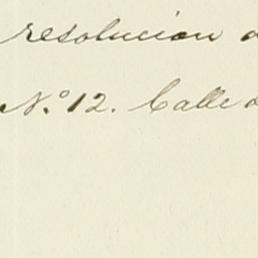 resolucion d
N.º 12. Calle d